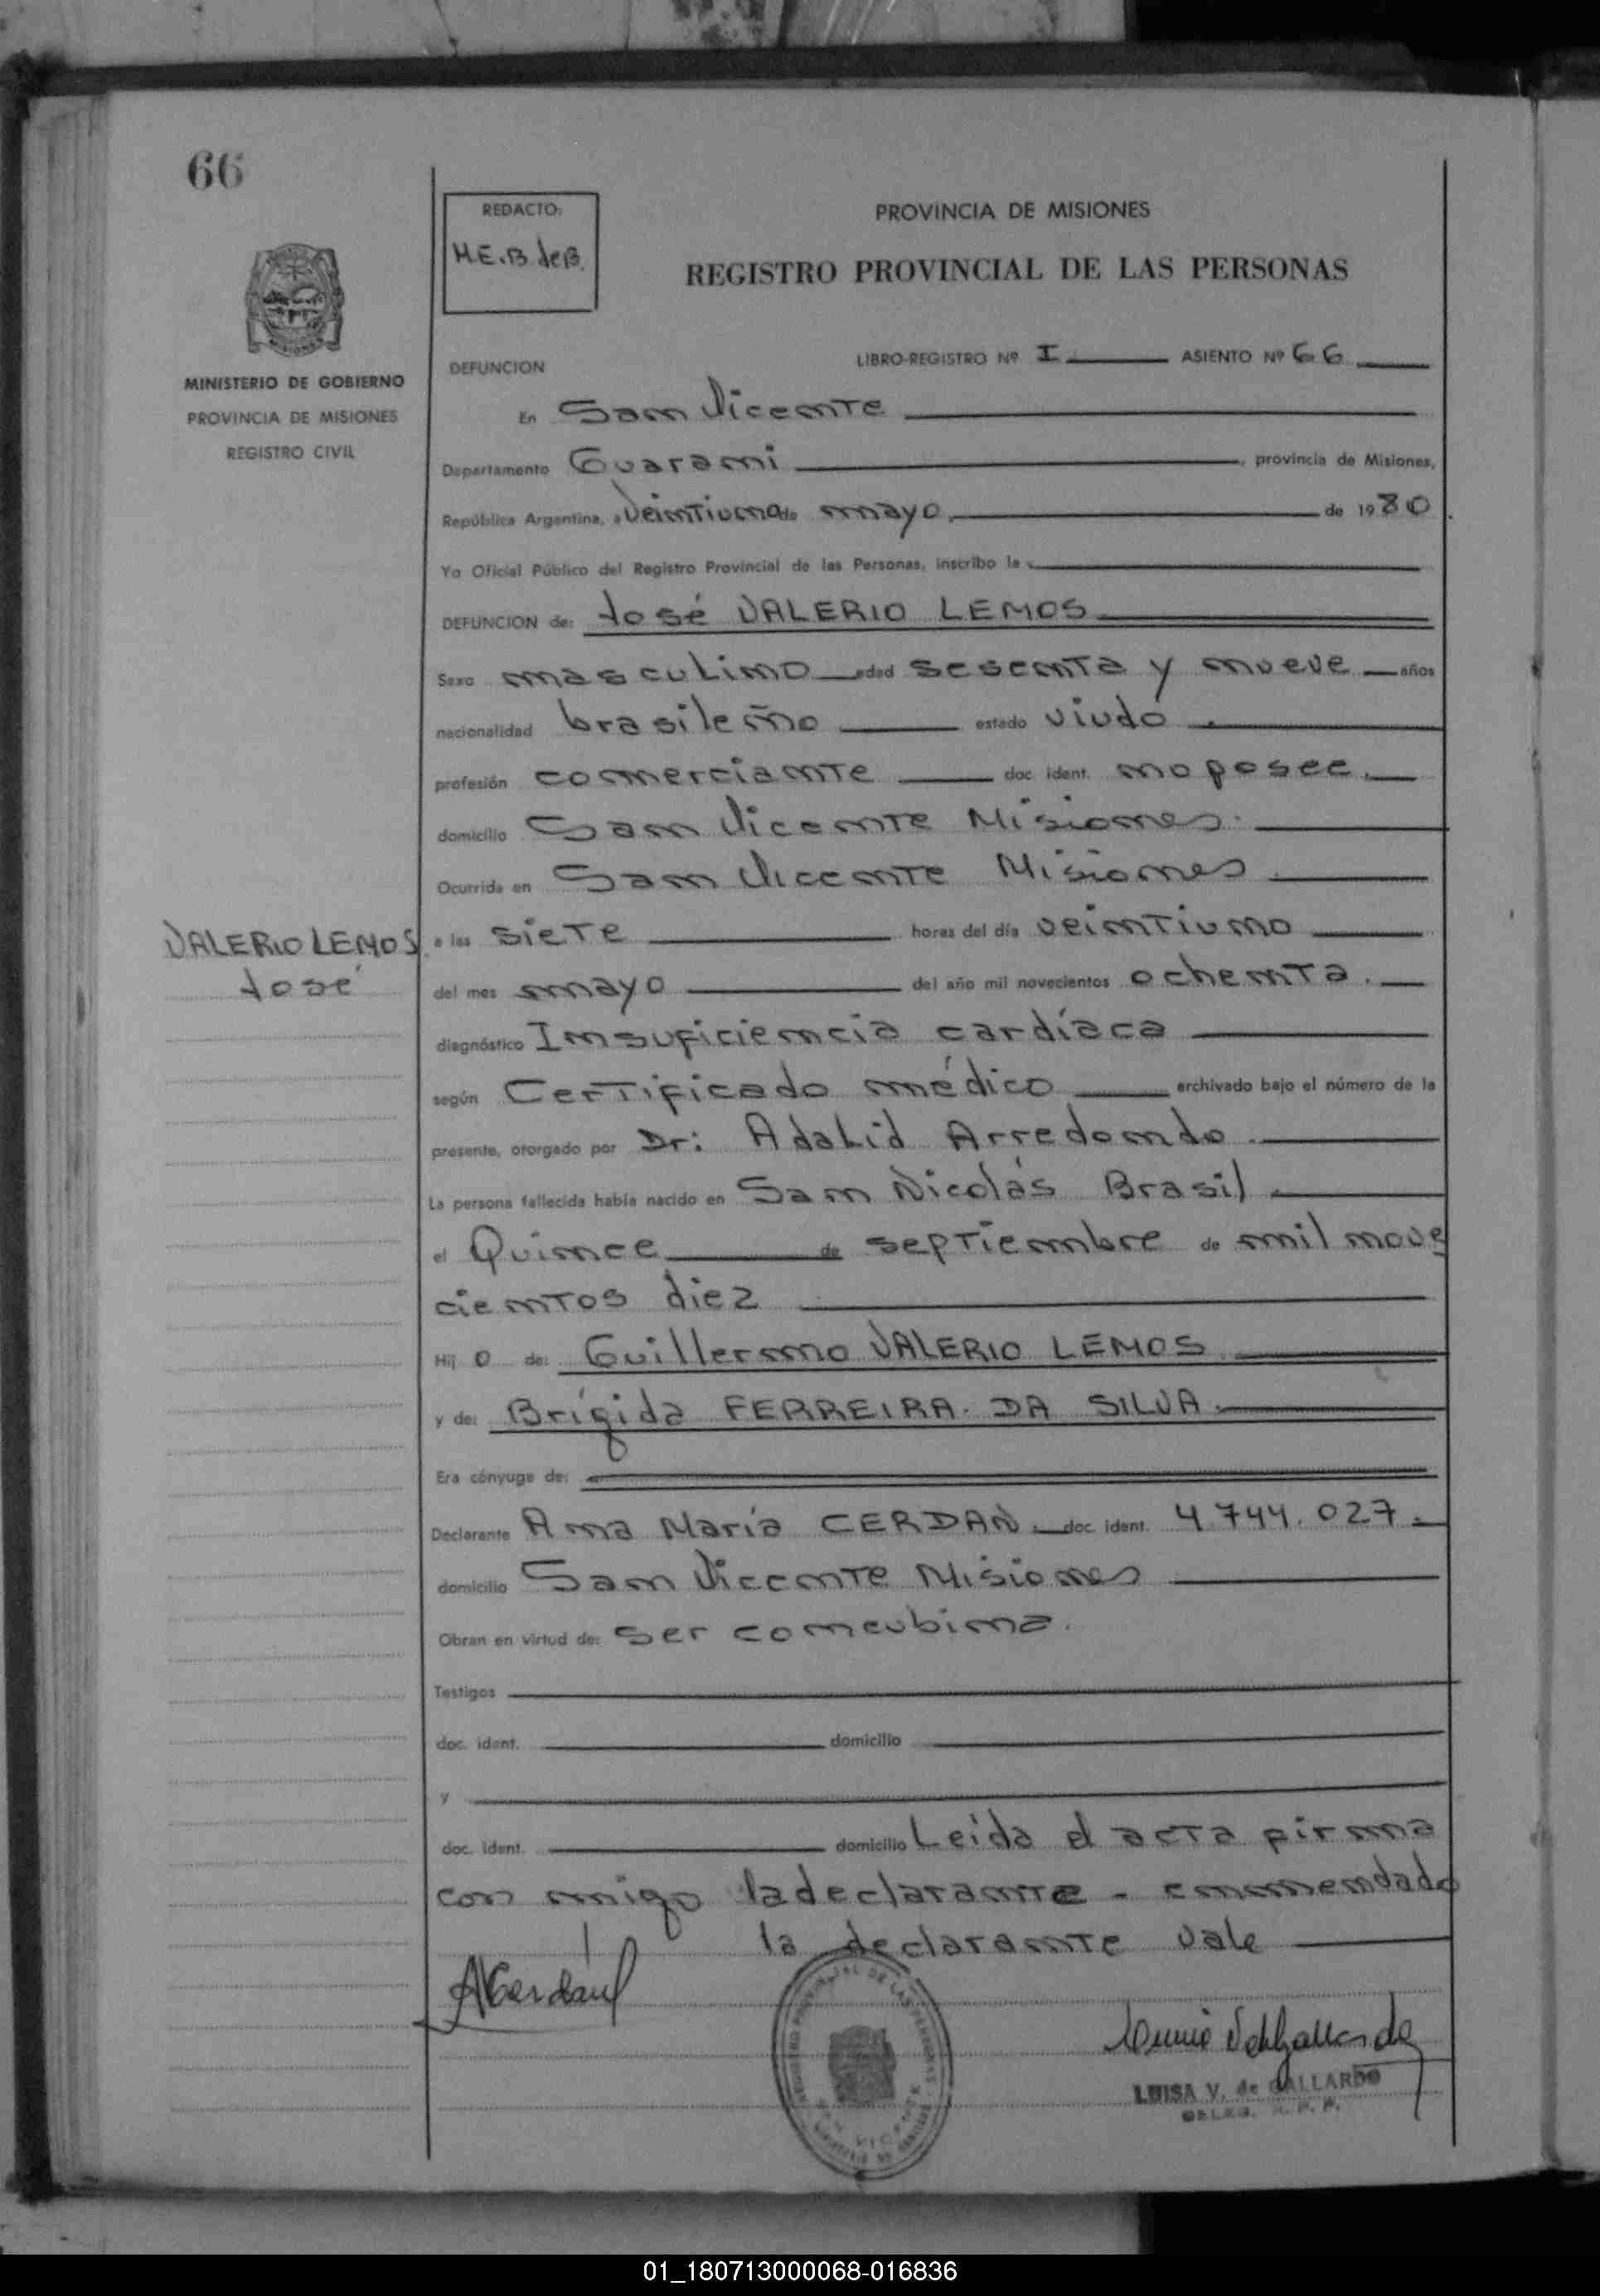 66
REDACTO:
M.E.B. de B.
PROVINCIA DE MISIONES
REGISTRO PROVINCIAL DE LAS PERSONAS
MINISTERIO DE GOBIERNO
PROVINCIA DE MISIONES
REGISTRO CIVIL
LIBRO-REGISTRO Nº I ASIENTO Nº 66
DEFUNCION
En San Vicente
Departamento Guarani, provincia de Misiones,
República Argentina, a veintiuno de mayo de 1980.
Yo Oficial Público del Registro Provincial de las Personas, inscribo la
DEFUNCION de: José VALERIO LEMOS
Sexo masculino edad sesenta y nueve años
nacionalidad brasileño estado viudo.
profesión comerciante doc. ident. no posee.
domicilio San Vicente Misiones.
Ocurrida en San Vicente Misiones
VALERIO LEMOS.
José
a las siete horas del día veintiuno
del mes mayo del año mil novecientos ochenta.
diagnóstico Insuficiencia cardíaca
según Certificado médico archivado bajo el número de la
presente, otorgado por Dr: Adalid Arredondo.
La persona fallecida había nacido en San Nicolás Brasil.
el Quince de septiembre de mil nove
cientos diez
Hij o de: Guillermo VALERIO LEMOS
y de: Brígida FERREIRA. DA SILVA.
Era cónyuge de:
Declarante Ana María CERDAN. doc. ident. 4.744.027.
domicilio San Vicente Misiones
Obran en virtud de: ser concubina.
Testigos
doc. ident. domicilio
y
doc. ident. domicilio Leida el acta firma
con migo la declarante - enmendado
la declarante vale
ACerdan
LUISA V. de GALLARDO
DELEG. R. P. P.
01_180713000068-016836